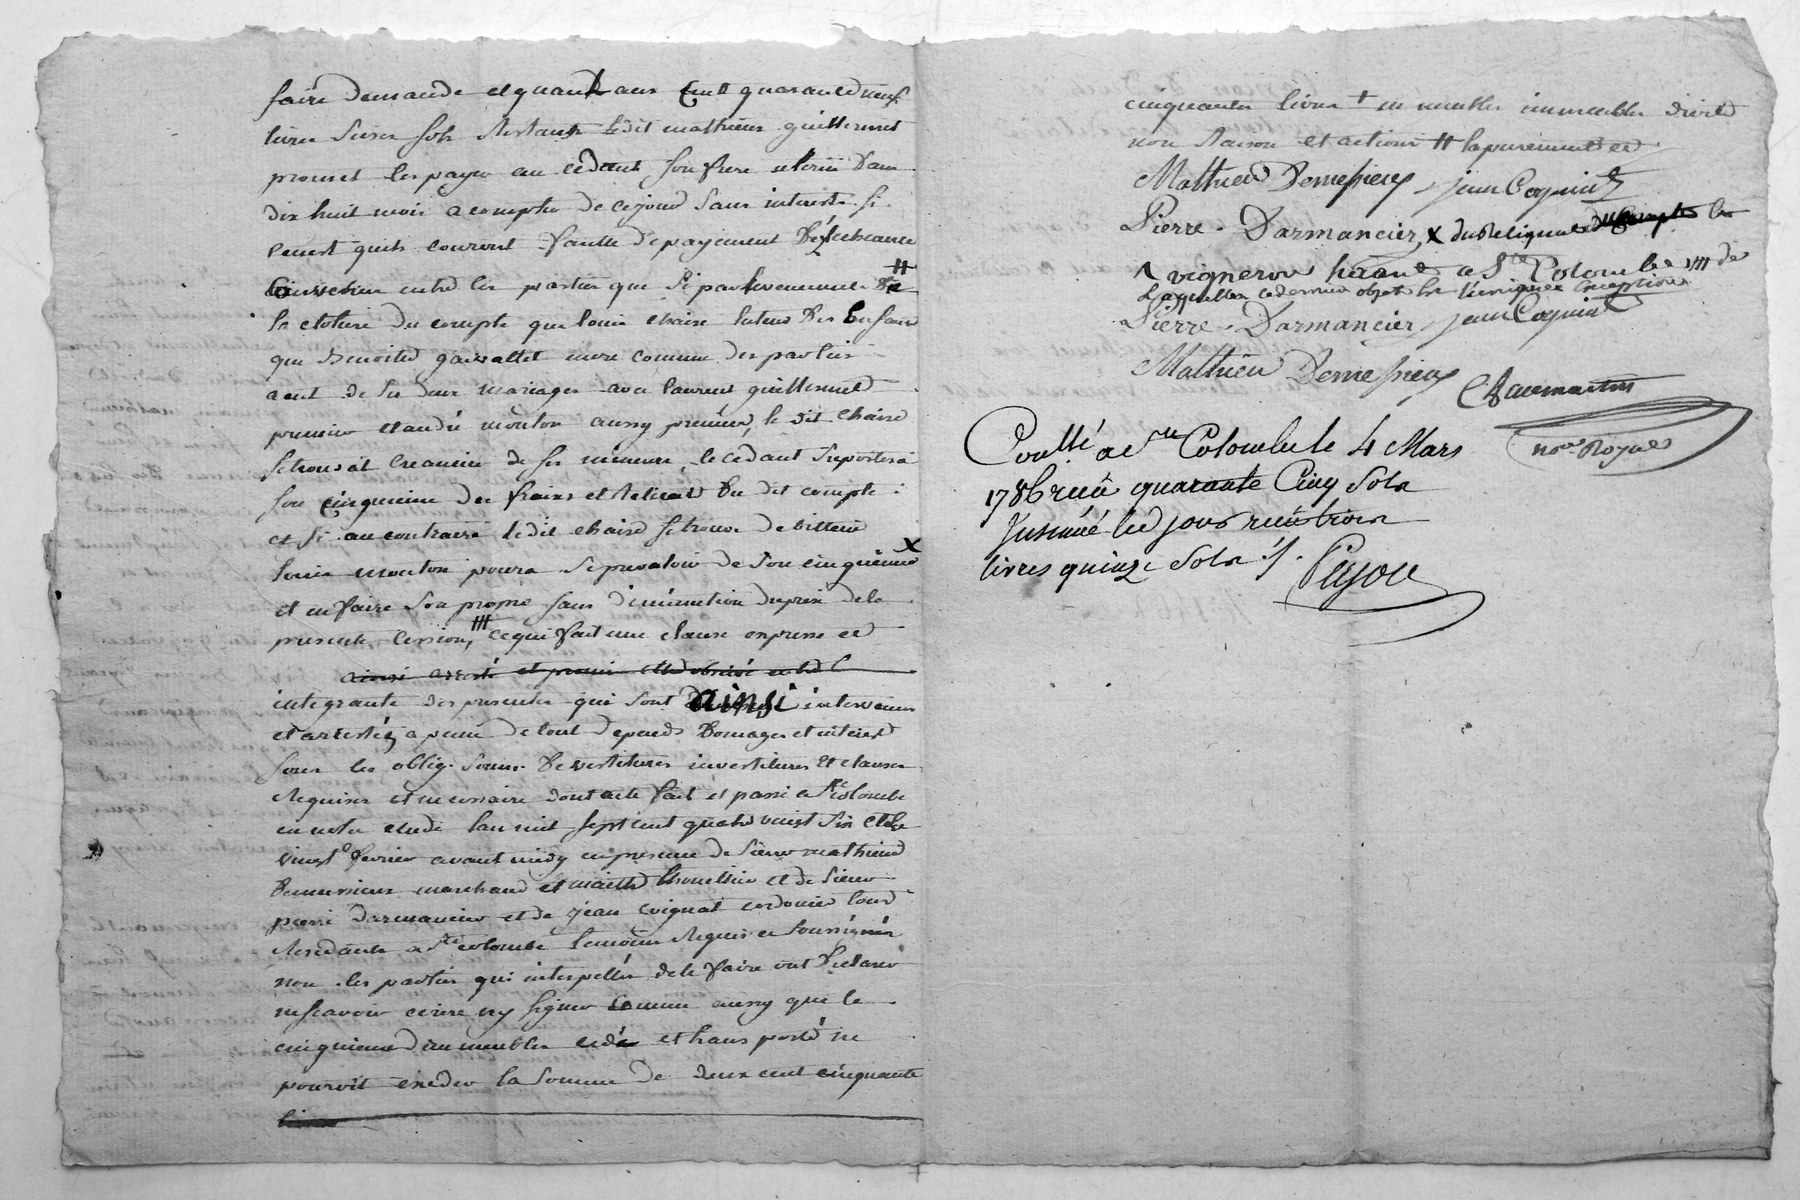 faire demande et quant aux Cent quarante neuf
livres seize sols restants ledit mathieu guillermet
promet les payer au cedant son frere uterin dans
dix huit mois a compter de ce jour sans interets si
ce n'est qu'ils courront faute de payement
Convenu entre les parties que si par l'evenement
la cloture du compte que louis chaize tuteur des Enfans
que Benoite gaivallet mere commune des parties
a eut de ses deux mariages avec laurent guillermet
premier et andré mouton aussy premier, le dit chaize
se trouvat creancier de ses mineurs, le cedant suportera
son cinquieme des frais et relicat du dit compte :
et si au contraire le dit chaize se trouve debiteur
louis mouton poura se prevaloir de son cinquieme X
et en faire son propre sans diminution du prix de la
presente cession, ce qui fait une clause expresse et
ainsi arreté et promis
integrante des presentes qui sont ainsi intervenus
et arrestés a peine de tout depends domages et interest
sous les oblig. soum. devestitures investitures et clauses
requises et necessaire dont acte fait et passé a Ste colombe
en notre etude l'an mil sept cent quatre vingt six et le
vingt fevrier avant midy en presence de sieur mathieu
Demessieux marchand et maitre et de sieur
pierre darmancier et de jean coignat cordonier tous
residants a Ste colombe temoins requis et soussignés
non les parties qui interpellés de le faire ont declaré
ne scavoir ecrire ny signer comme aussy que le
cinquieme d'immeubles cedé et transporté ne
pouroit exeder la somme de deux cent cinquante
livres
cinquante livres + en meubles immeubles droits
nom raison et actions # la purement et
Mathieu Demessieux jean Coignat
Pierre Darmancier X du reliquat du Compte les
vigneron hérant a Ste Colombe IIII de
laquelle
Pierre Darmancier jean Coignat
Mathieu Demessieux
Chaumartin
nore Royal
Conllé a Ste Colombe le 4 Mars
1786 reçu quarante Cinq Sols
Jnsinué led jour reçu trois
livres quinze Sols ./.